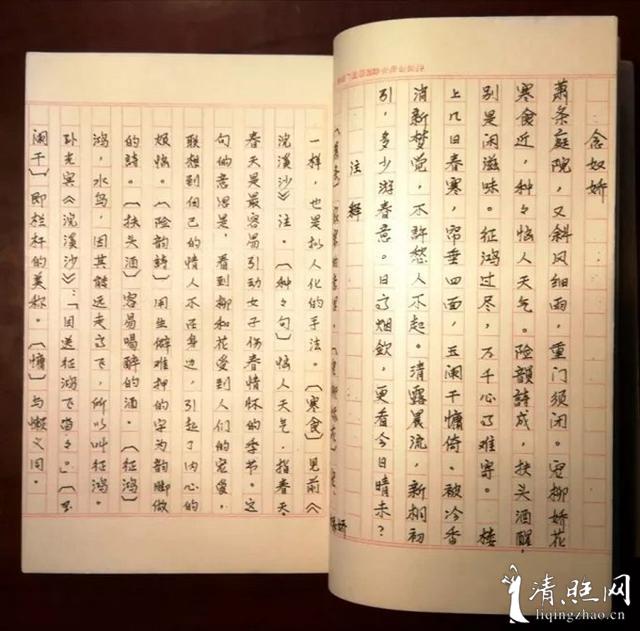 念奴娇
萧条庭院，又斜风细雨，重门须闭。宠柳娇花
寒食近，种々恼人天气。险韵詩成，扶头酒醒，
别是闲滋味。征鸿过尽，万千心事难寄。 楼
上几日春寒，帘垂四面，玉阑干慵倚。被冷香
消新梦觉，不許愁人不起。清露晨流，新桐初
引，多少游春意。日高烟敛，更看今日晴未？
注释
一样，也是拟人化的手法。〔寒食〕见前《
浣溪沙》注。〔种々句〕恼人天气，指春天，
春天是最容易引动女子伤春情怀的季节。这
句的意思是，看到柳和花受到人们的宠爱，
联想到自己的情人不在身边，引起了内心的
烦恼。〔险韵詩〕用生僻难押的字为韵脚做
的詩。〔扶头酒〕容易喝醉的酒。〔征鸿〕
鸿，水鸟，因其能远走高飞，所以叫征鸿。
孙光宪《浣溪沙》：「目送征鸿飞杳々。」〔玉
阑干〕即栏杆的美称。〔慵〕与懒义同。
清照网
liqingzhao.cn